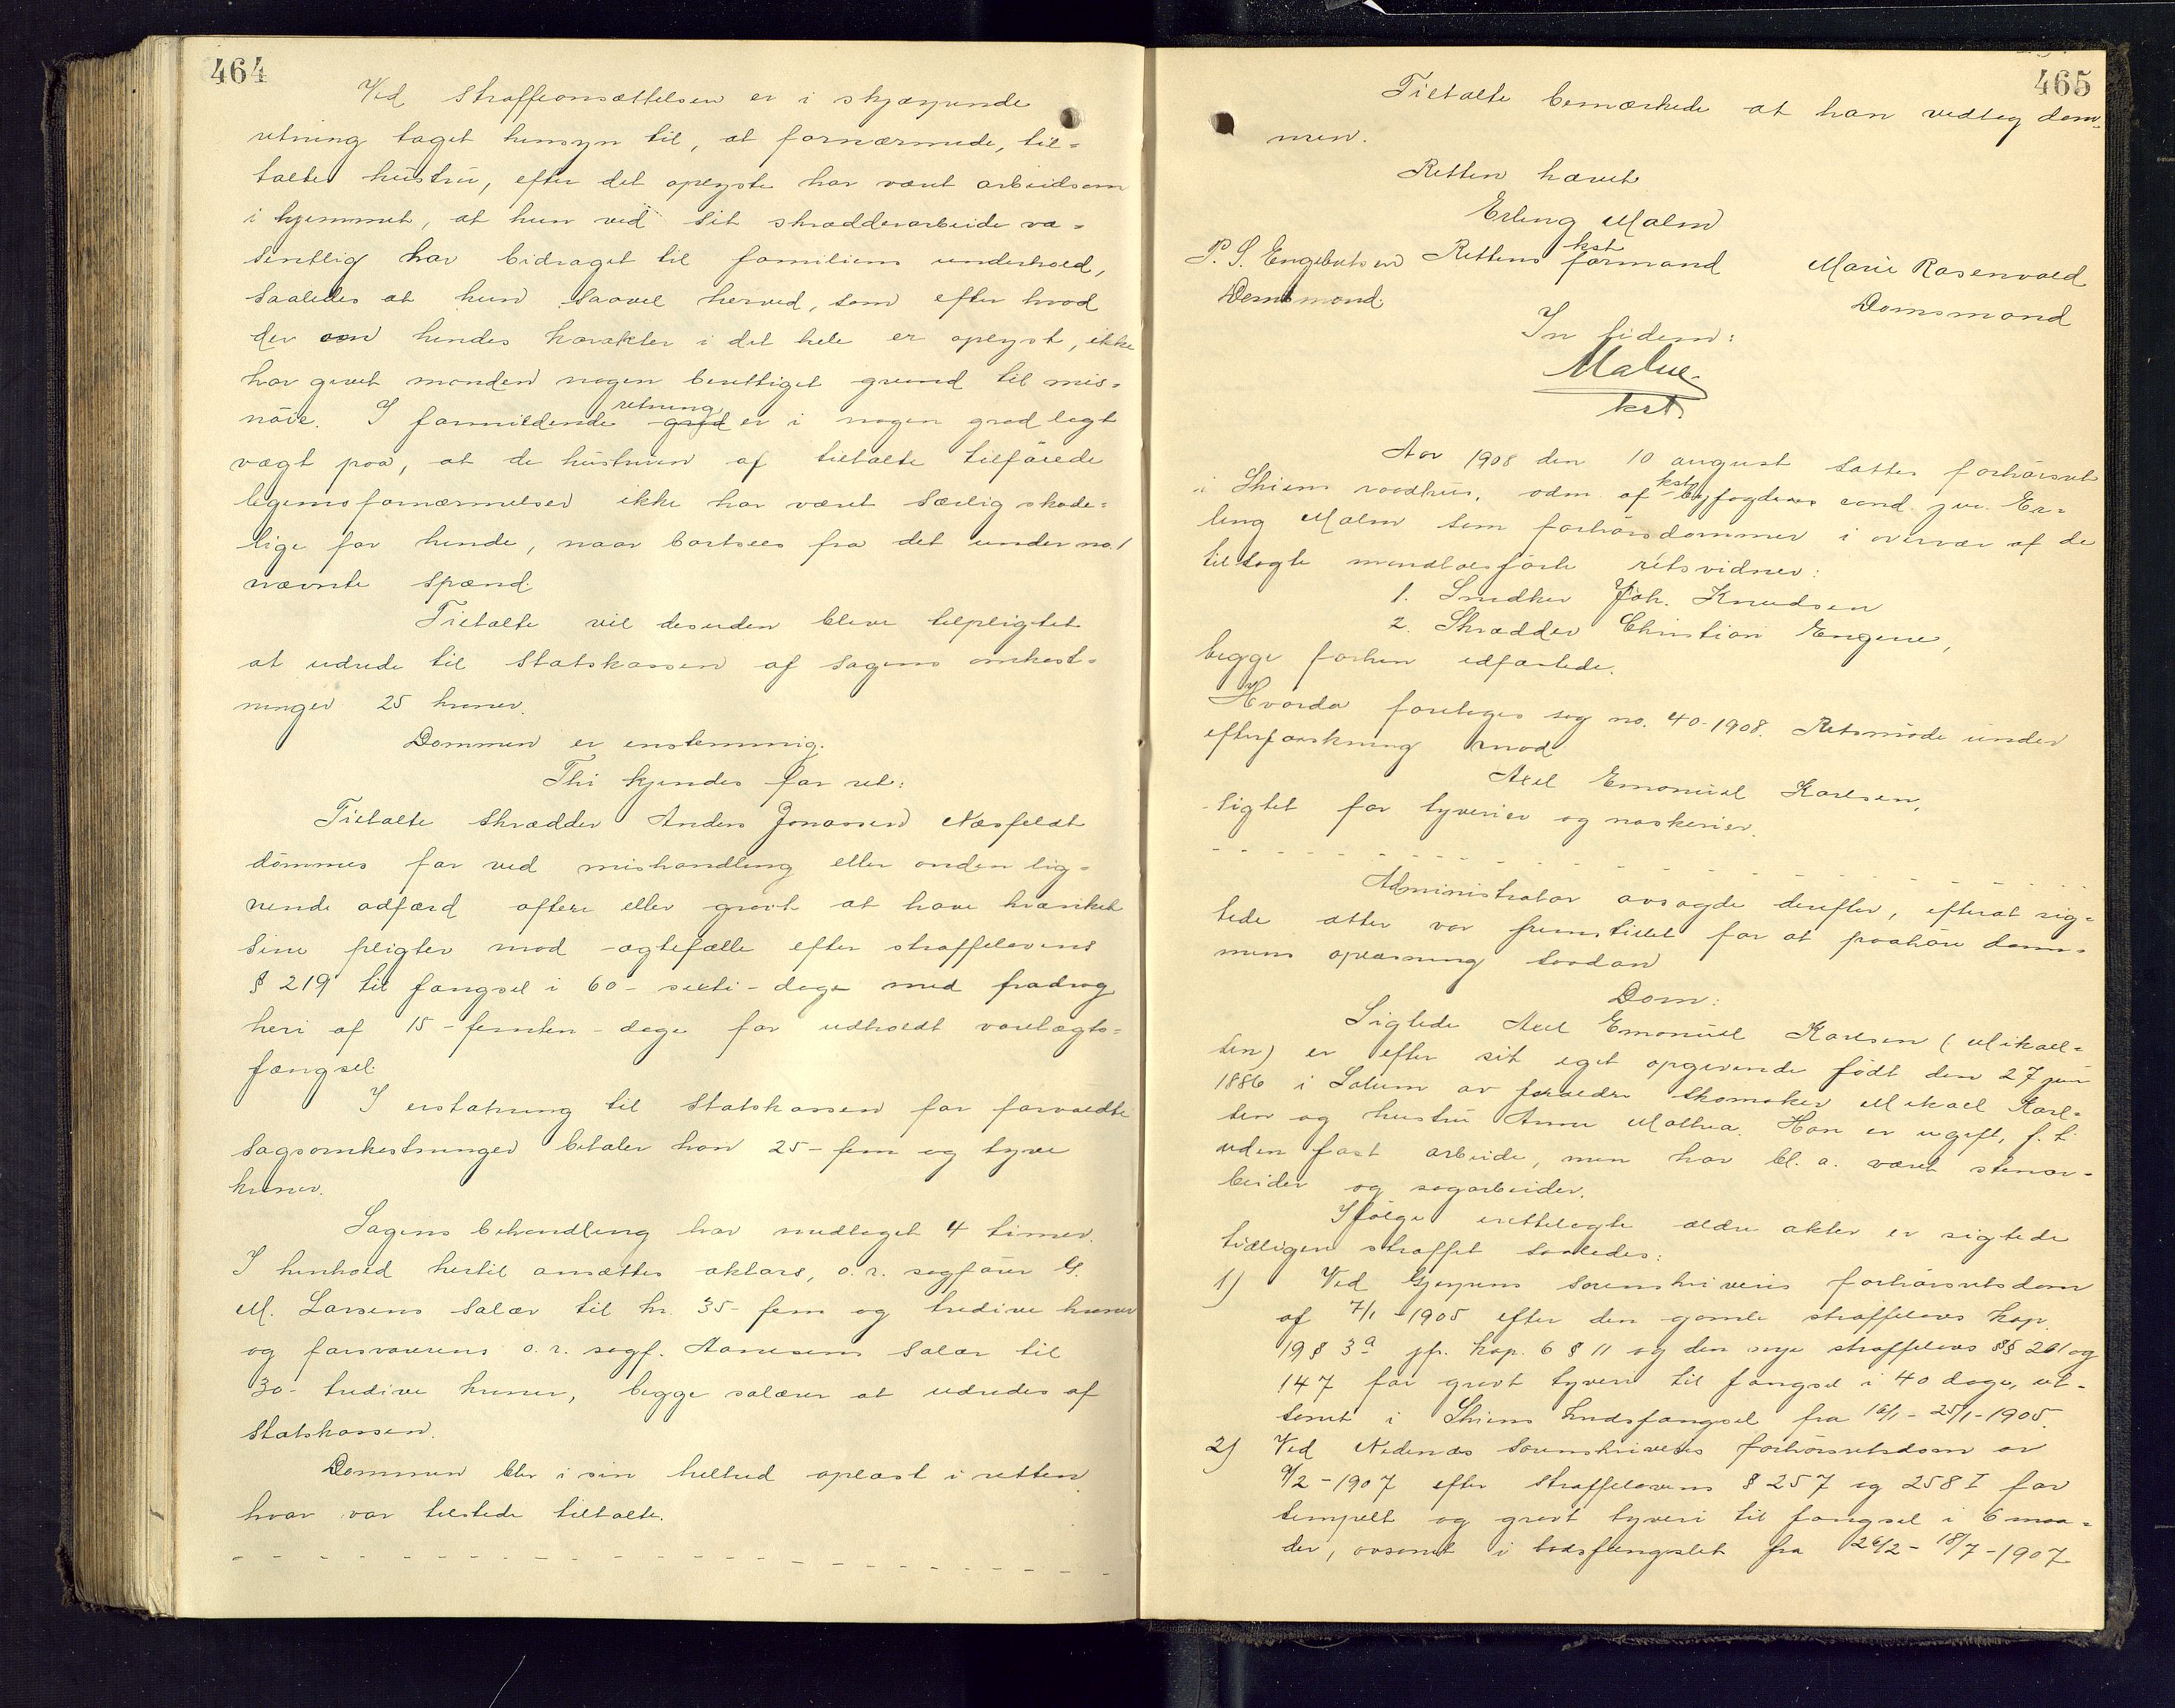 464
Ved straffeansættelsen er i skjærpende
retning taget hensyn til, at fornærmede, til=
taltes hustru, efter det oplyste har været arbeidsom
i hjemmet, at hun ved sit skrædderarbeide væ=
sentlig har bidraget til familiens underhold,
saaledes at hun saavel herved, som efter hvad
der om hendes karakter i det hele er oplyst, ikke
har givet manden nogen berettiget grund til mis=
nöie. I formildende grad retning er i nogen grad lagt
vægt paa, at de hustruen af tiltalte tilföiede
legemsfornærmelser ikke har været særlig skade=
lige for hende, naar bortsees fra det under no. 1
nævnte spænd.
Tiltalte vil desuden blive tilpligtet
at udrede til statskassen af sagens omkost=
ninger 25 kroner.
Dommen er enstemmig.
Thi kjendes for ret:
Tiltalte skrædder Anders Jonassen Næsfeldt
dömmes for ved mishandling eller anden lig=
nende adfærd oftere eller grovt at have krænket
sine pligter mod ægtefælle efter straffelovens
§ 219 til fængsel i 60 - seksti - dage med fradrag
heri af 15 - femten - dage for udholdt varetægts=
fængsel.
I erstatning til statskassen for forvoldte
sagsomkostninger betaler han 25 - fem og tyve
kroner.
Sagens behandling har medtaget 4 timer.
I henhold hertil ansættes aktors, o. r. sagförer G.
M. Larsens salær til kr. 35 - fem og tredive kroner
og forsvarerens o. r. sagf. Aanesens salær til
30 - tredive kroner, begge salærer at udredes af
statskassen.
Dommen blev i sin helhed oplæst i retten
hvor var tilstede tiltalte.
465
Tiltalte bemærkede at han vedtog dom=
men.
Retten hævet
Erling Malm
kst
P. S. Engebretsen Rettens formand Marie Rosenvold
Domsmand. Domsmand
In fidem:
Malm
kst
Aar 1908 den 10 august sattes forhörsret
i Skiens raadhus, adm. af kst. byfogden cand. jur. Er=
ling Malm som forhörsdommer i overvær af de
tilsagte mandtalsförte retsvidner:
1. Snedker Joh. Knudsen
2. Skrædder Christian Engene,
begge forhen edfæstede.
Hvorda foretoges sag no. 40-1908. Retsmöde under
efterforskning mod
Axel Emanuel Karlsen,
sigtet for tyverier og naskerier.
Administrator avsagde derefter, efterat sig=
tede atter var fremstillet for at paahöre dom=
mens oplæsning saadan
Dom:
Sigtede Axel Emanuel Karlsen (Mikael=
sen) er efter sit eget opgivende födt den 27 juni
1886 i Solum av foreldre skomaker Mikael Karl=
sen og hustru Anne Mathea. Han er ugift, f. t.
uden fast arbeide, men har bl. a. været stenar=
beider og sagarbeider.
Ifölge irettelagte ældre akter er sigtede
tidligere straffet saaledes:
1) Ved Gjerpens sorenskriveris forhörsretsdom
af 7/1 - 1905 efter den gamle straffelovs kap.
19 § 3 a jfr. kap. 6 § 11 og den nye straffelovs §§ 261 og
147 for grovt tyveri til fængsel i 40 dage, ut-
sonet i Skiens kredsfængsel fra 16/1 - 25/1 - 1905.
2) Ved Nedenæs sorenskriveris forhörsretsdom av
9/2 - 1907 efter straffelovens § 257 og 258 I for
simpelt og grovt tyveri til fængsel i 6 maa=
der, avsonet i bodsfængslet fra 26/2 - 18/7 - 1907